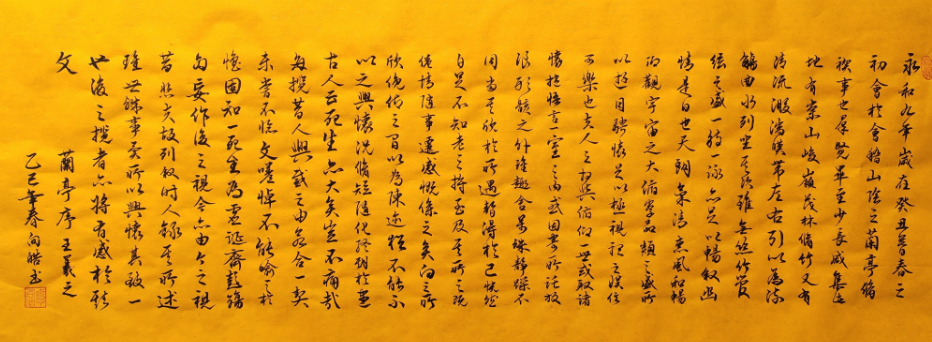 永和九年歲在癸丑暮春之
初會於會稽山陰之蘭亭脩
禊事也群賢畢至少長咸集此
地有崇山峻嶺茂林脩竹又有
清流激湍映帶左右引以為流
觴曲水列坐其次雖無絲竹管
弦之盛一觴一詠亦足以暢敘幽
情是日也天朗氣清惠風和暢
仰觀宇宙之大俯察品類之盛所
以遊目騁懷足以極視聽之娛信
可樂也夫人之相與俯仰一世或取諸
懷抱悟言一室之內或因寄所託放
浪形骸之外雖趣舍萬殊靜躁不
同當其欣於所遇暫得於己怏然
自足不知老之將至及其所之既
倦情隨事遷感慨係之矣向之所
欣俛仰之間以為陳迹猶不能不
以之興懷況脩短隨化終期於盡
古人云死生亦大矣豈不痛哉
每攬昔人興感之由若合一契
未嘗不臨文嗟悼不能喻之於
懷固知一死生為虛誕齊彭殤
為妄作後之視今亦由今之視
昔悲夫故列敘時人錄其所述
雖世殊事異所以興懷其致一
也後之攬者亦將有感於斯
文
蘭亭序王羲之
乙巳年春書